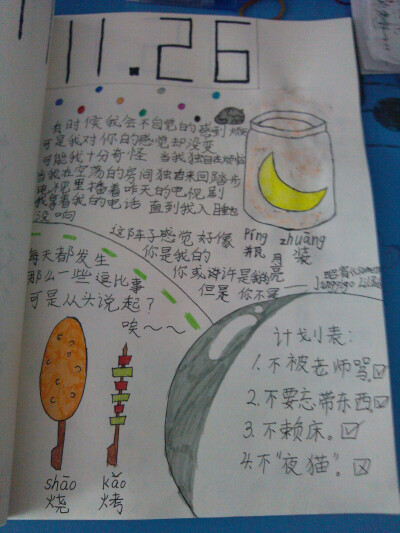 11.26
有时候我会不自觉的感到烦
可是我对你的感觉却没变
可能我十分奇怪 当我独自在烦恼
当我在空荡的房间独自来回踏步
电视里播着昨天的电视剧
我拿着我的电话 直到我入睡也
没响
这阵子感觉好像
你是我的
你或许许是
但是 你不是
píng zhuāng
瓶 月亮 装
每天都发生
那么一些逗比事
可是从头说起？
唉～～
计划表：
1.不被老师骂。☑
2.不要忘带东西☑
3.不赖床。☑
4.不“夜猫”。☒
shāo kǎo
烧 烤